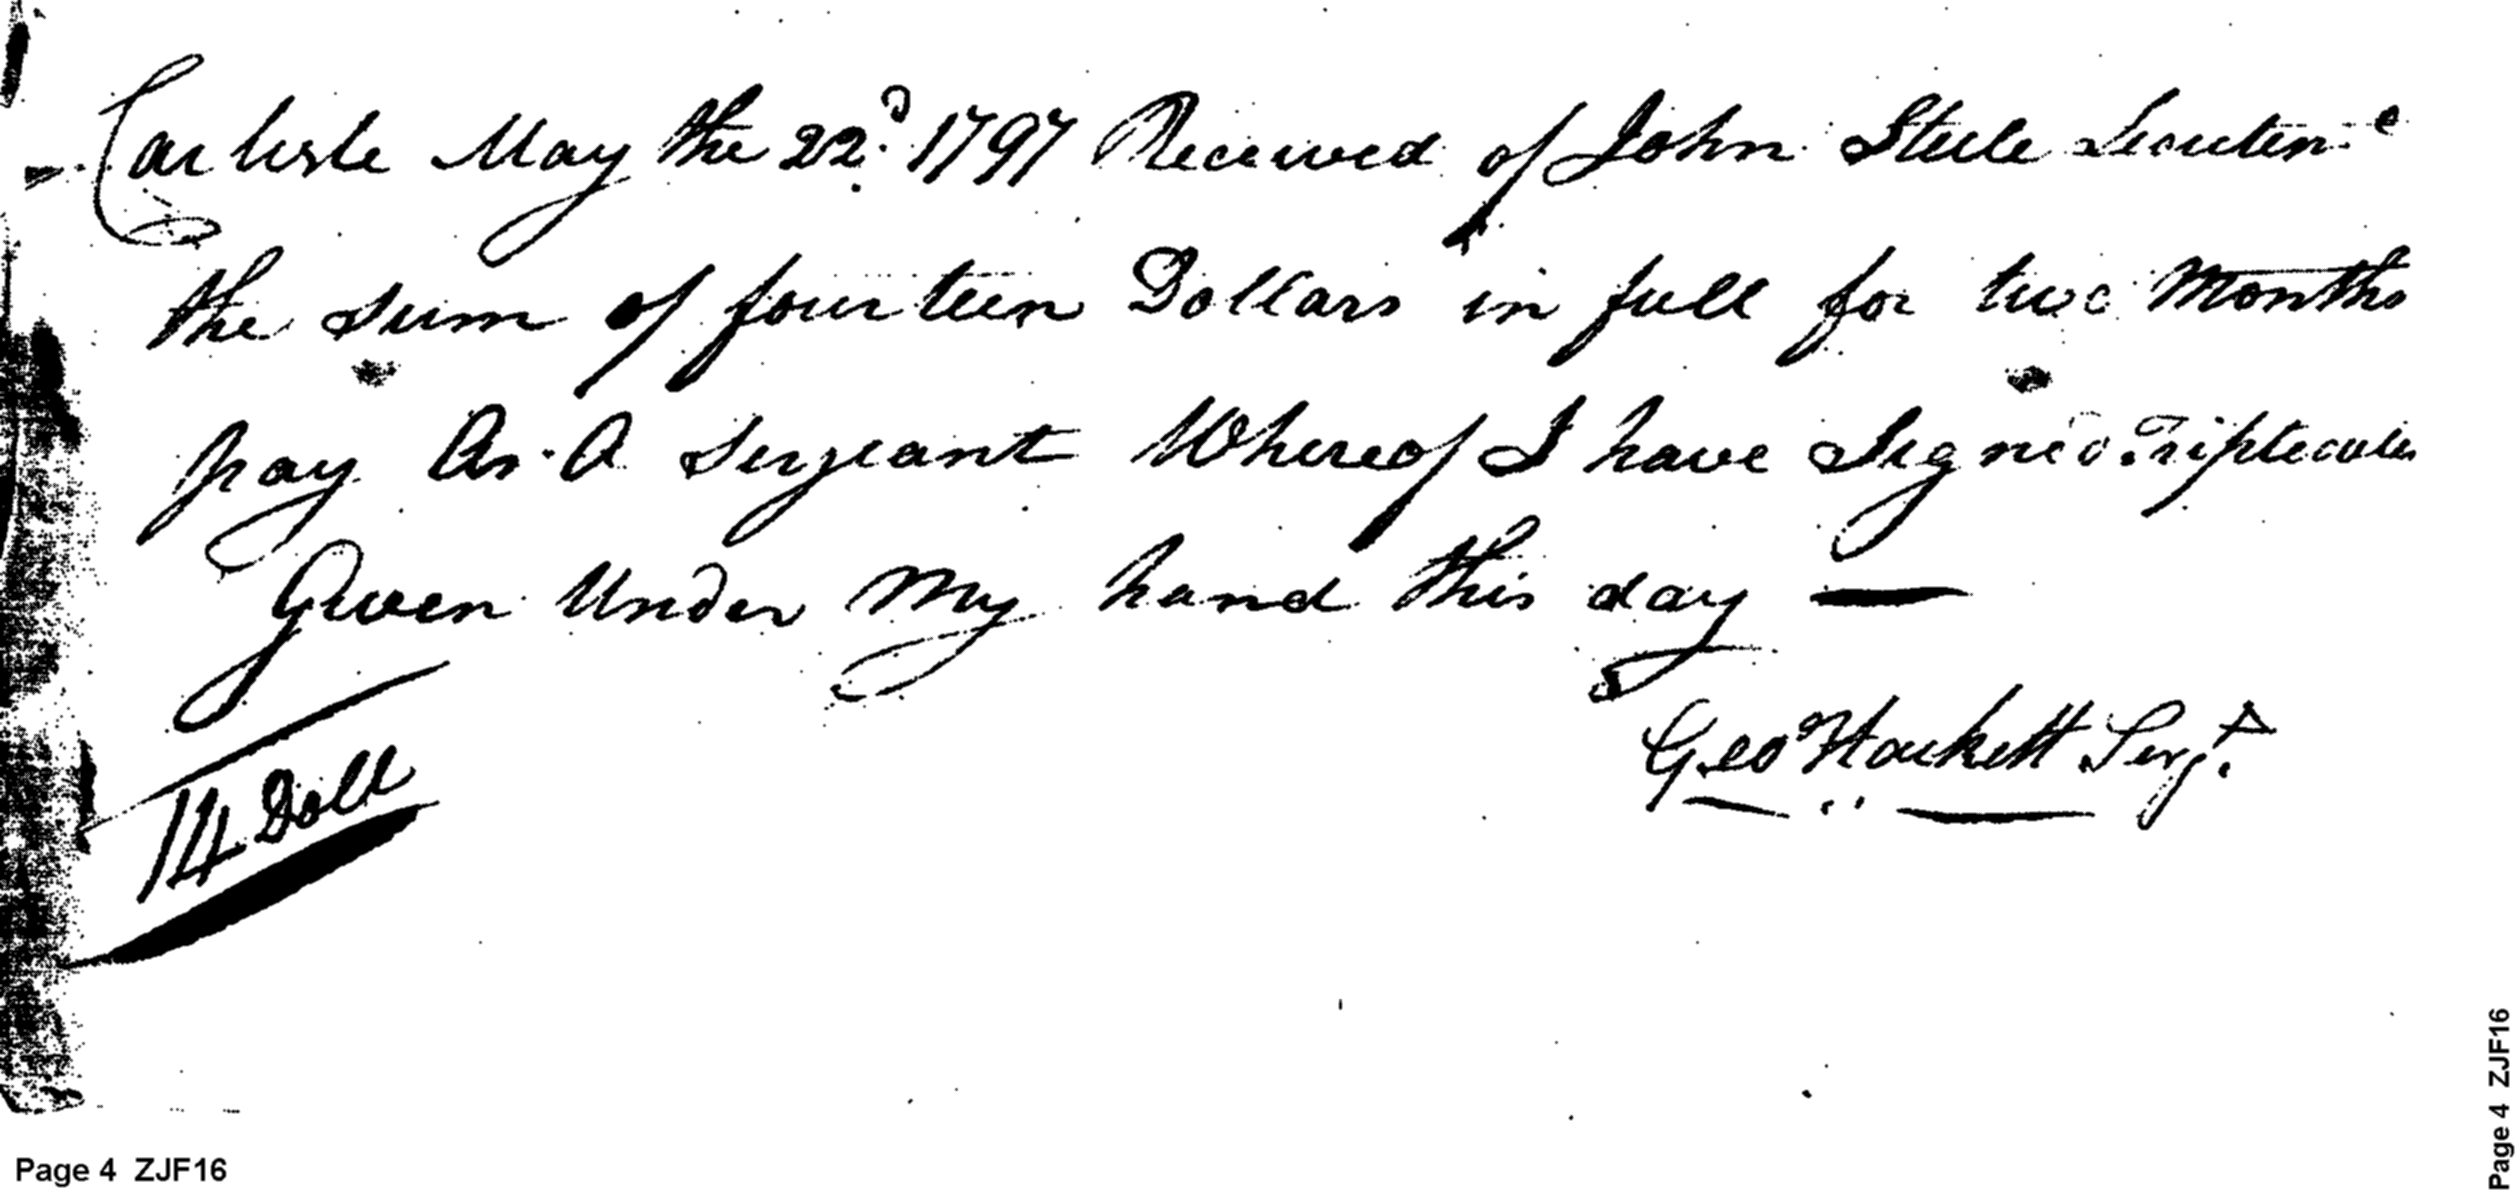 Carlisle May the 22d. 1797 Received of John Steele Lieuten.t
the Sum of fourteen Dollars in full for two Months
pay As A Sergeant Whereof I have Signed Triplecates
Given Under My hand this day
Geo Hackett Sergt.
14 Doll
Page 4 ZJF16
Page 4 ZJF16